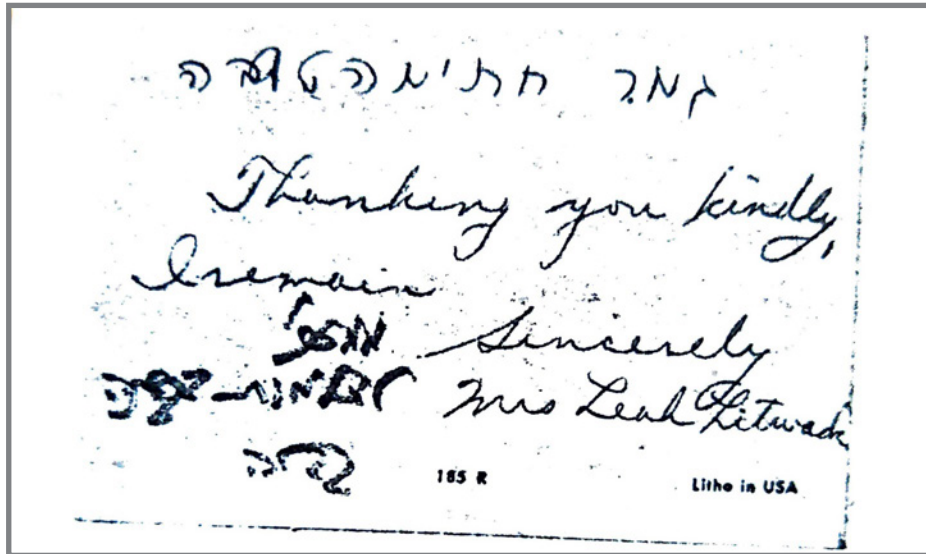 גמר חתימה טובה
Thanking you kindly,
I remain
Sincerely
Mrs Leah Litwack
185 R
Litho in USA